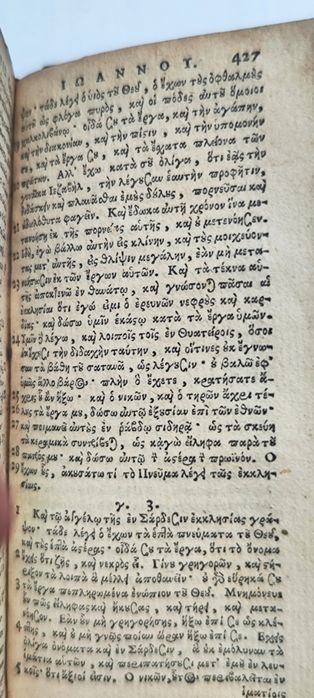 ΙΩΑΝΝΟΥ. 427
ψον· τάδε λέγει ὁ υἱὸς τοῦ Θεοῦ, ὁ ἔχων τοὺς ὀφθαλμοὺς
ὡς φλόγα πυρὸς, καὶ οἱ πόδες αὐτοῦ ὅμοιοι
χαλκολιβάνῳ. οἶδά σου τὰ ἔργα, καὶ τὴν ἀγάπην,
καὶ τὴν διακονίαν, καὶ τὴν πίστιν, καὶ τὴν ὑπομονήν
σου, καὶ τὰ ἔργα σου, καὶ τὰ ἔσχατα πλείονα τῶν
πρώτων. Ἀλλ' ἔχω κατὰ σοῦ ὀλίγα, ὅτι ἐᾷς τὴν
γυναῖκα Ἰεζαβὴλ, τὴν λέγουσαν ἑαυτὴν προφῆτιν,
διδάσκειν καὶ πλανᾶσθαι ἐμοὺς δούλους, πορνεῦσαι καὶ
εἰδωλόθυτα φαγεῖν. Καὶ ἔδωκα αὐτῇ χρόνον ἵνα με-
τανοήσῃ ἐκ τῆς πορνείας αὐτῆς, καὶ οὐ μετενόησεν.
ἰδοὺ, ἐγὼ βάλλω αὐτὴν εἰς κλίνην, καὶ τοὺς μοιχεύον-
τας μετ' αὐτῆς, εἰς θλίψιν μεγάλην, ἐὰν μὴ μετα-
νοήσωσιν ἐκ τῶν ἔργων αὐτῶν. Καὶ τὰ τέκνα αὐ-
τῆς ἀποκτενῶ ἐν θανάτῳ, καὶ γνώσονται πᾶσαι αἱ
ἐκκλησίαι ὅτι ἐγώ εἰμι ὁ ἐρευνῶν νεφροὺς καὶ καρ-
δίας· καὶ δώσω ὑμῖν ἑκάστῳ κατὰ τὰ ἔργα ὑμῶν.
24 Ὑμῖν δὲ λέγω, καὶ λοιποῖς τοῖς ἐν Θυατείροις, ὅσοι
οὐκ ἔχουσι τὴν διδαχὴν ταύτην, καὶ οἵτινες οὐκ ἔγνω-
σαν τὰ βάθη τοῦ σατανᾶ, ὡς λέγουσιν· οὐ βαλῶ ἐφ'
25 ὑμᾶς ἄλλο βάρος· πλὴν ὃ ἔχετε, κρατήσατε ἄ-
26 χρις οὗ ἂν ἥξω· καὶ ὁ νικῶν, καὶ ὁ τηρῶν ἄχρι τέ-
λους τὰ ἔργα μου, δώσω αὐτῷ ἐξουσίαν ἐπὶ τῶν ἐθνῶν·
27 καὶ ποιμανεῖ αὐτοὺς ἐν ῥάβδῳ σιδηρᾷ· ὡς τὰ σκεύη
τὰ κεραμικὰ συντρίβεται, ὡς κἀγὼ εἴληφα παρὰ τοῦ
28 πατρός μου· καὶ δώσω αὐτῷ τὸν ἀστέρα τὸν πρωϊνόν. Ὁ
29 ἔχων οὖς, ἀκουσάτω τί τὸ Πνεῦμα λέγει ταῖς ἐκκλη-
σίαις.
γ. 3.
1 Καὶ τῷ ἀγγέλῳ τῆς ἐν Σάρδεσιν ἐκκλησίας γρά-
ψον· τάδε λέγει ὁ ἔχων τὰ ἑπτὰ πνεύματα τοῦ Θεοῦ,
καὶ τοὺς ἑπτὰ ἀστέρας· οἶδά σου τὰ ἔργα, ὅτι τὸ ὄνομα
2 ἔχεις ὅτι ζῇς, καὶ νεκρὸς εἶ. Γίνου γρηγορῶν, καὶ στή-
ριξον τὰ λοιπὰ ἃ μέλλει ἀποθανεῖν· οὐ γὰρ εὕρηκά σου
3 τὰ ἔργα πεπληρωμένα ἐνώπιον τοῦ Θεοῦ. Μνημόνευε
οὖν πῶς εἴληφας καὶ ἤκουσας, καὶ τήρει, καὶ μετα-
νόησον. Ἐὰν οὖν μὴ γρηγορήσῃς, ἥξω ἐπί σε ὡς κλέ-
4 πτης, καὶ οὐ μὴ γνῷς ποίαν ὥραν ἥξω ἐπί σε. Ἔχεις
ὀλίγα ὀνόματα καὶ ἐν Σάρδεσιν, ἃ οὐκ ἐμόλυναν τὰ
ἱμάτια αὐτῶν, καὶ περιπατήσουσι μετ' ἐμοῦ ἐν λευ-
5 κοῖς· ὅτι ἄξιοί εἰσιν. Ὁ νικῶν, οὗτος περιβαλεῖται ἐν
ἱματίοις